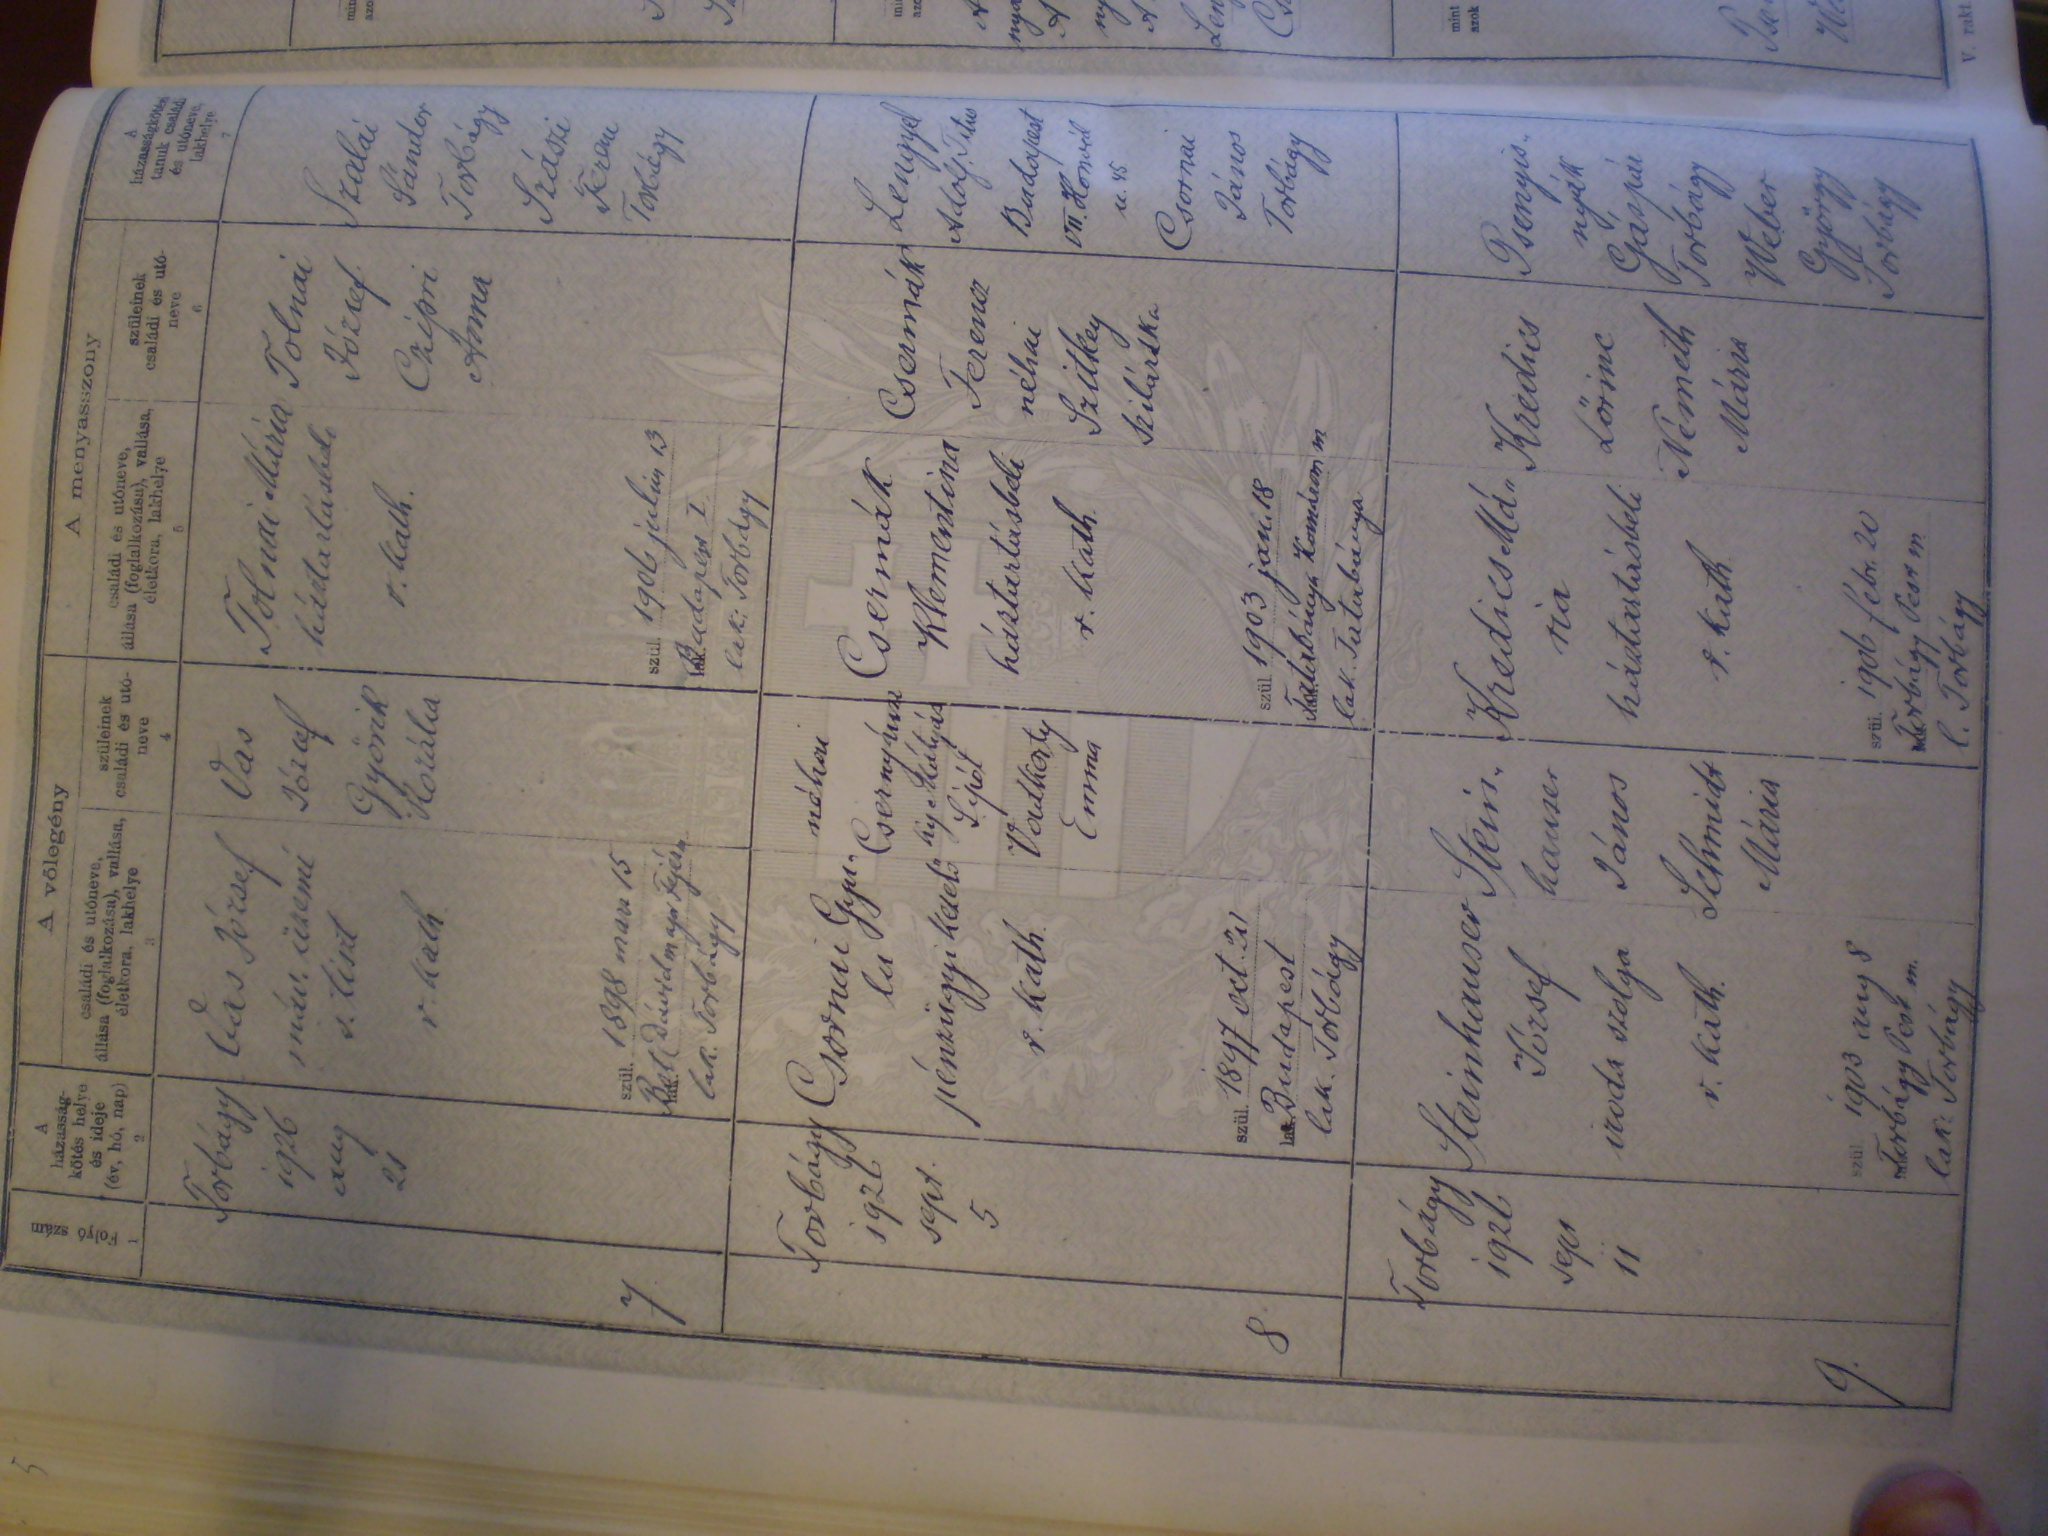 5
A vőlegény
A menyasszony
Folyó
szám
1
A
házasság-
kötés helye
és ideje
(év, hó, nap)
2
családi és utóneve,
állása (foglalkozása), vallása,
életkora, lakhelye
3
szüleinek
családi és utó-
neve
4
családi és utóneve,
állása (foglalkozása), vallása,
életkora, lakhelye
5
szüleinek
családi és utó-
neve
6
A
házasságkötés
tanuk családi
és utóneve,
lakhelye
7
7
Torbágy
1926
aug
21
Vas József
máv. üzemi
s. tiszt
r. kath.
szül. 1898 marc 15
lak. Torbágy
Vas
József
Győrik
Rozália
Tolnai Mária
háztartásbeli
r. kath.
szül. 1906 julius 13
Budapest I.
lak: Torbágy
Tolnai
József
Czipri
Anna
Szalai
Sándor
Torbágy
Szászi
Ferenc
Torbágy
8
Torbágy
1926
sept.
5
Csornai Gyu-
la
pénzügyi
r. kath.
szül. 1897 oct. 21
Budapest
lak. Torbágy
néhai
Lipót
Vadkerty
Emma
Csermák
Klementina
háztartásbeli
r. kath.
szül. 1903 jan. 18
Tatabánya Komárom m
lak. Tatabánya
Csermák
Ferencz
néhai
Szitkey
Szilárdka
Lengyel
Adolf Titus
Budapest
VII. Hernád
u. 45
Csornai
János
Torbágy
9.
Torbágy
1926
sept
11
Steinhauser
József
iroda szolga
r. kath.
szül 1903 aug 8
Torbágy Pest m.
lak: Torbágy
Stein-
hauser
János
Schmidt
Mária
Kredics Má-
ria
háztartásbeli
r. kath.
szül. 1906 febr. 20
Torbágy Pest m
l. Torbágy
Kredics
Lőrinc
Németh
Mária
Psenyis-
nyák
Gáspár
Torbágy
Weber
György
Torbágy
mint
azok
V. rakt.